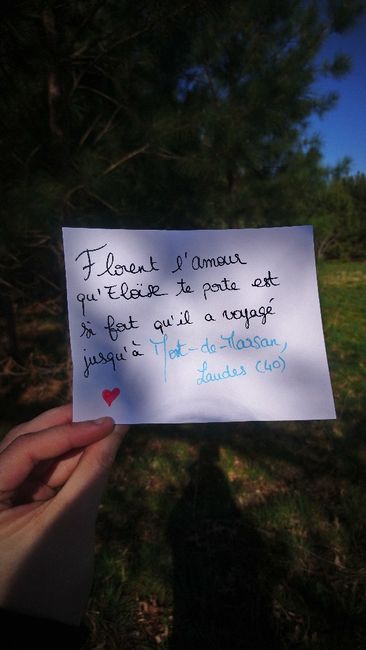 Florent l'amour
qu'Eloïse te porte est
si fort qu'il a voyagé
jusqu'à Mont-de-Marsan,
Landes (40)